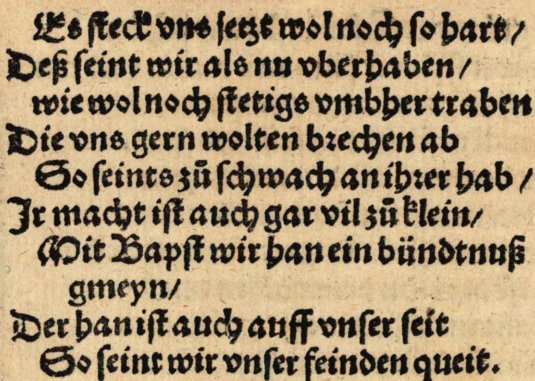 Es steck vns jetzt wol noch so hart /
Deß seint wir als nu vberhaben /
wie wol noch stetigs vmbher traben
Die vns gern wolten brechen ab
So seints zů schwach an ihrer hab /
Jr macht ist auch gar vil zů klein /
Mit Bapst wir han ein bündtnuß
gmeyn /
Der han ist auch auff vnser seit
So seint wir vnser feinden queit.